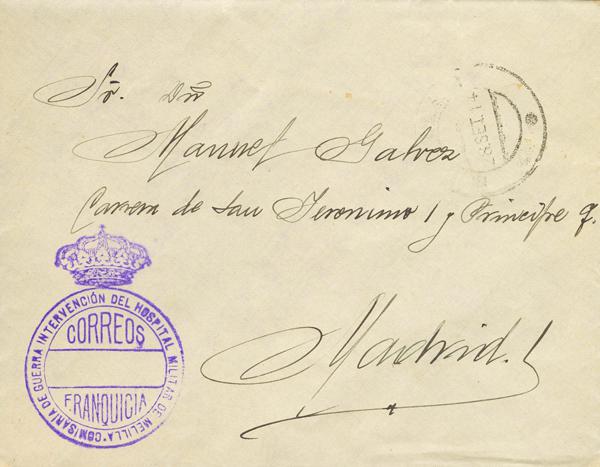 Sr. Dn
Manuel Galvez
Carrera de San Jeronimo 1 y Principe 9.
Madrid.
COMISARÍA DE GUERRA INTERVENCIÓN DEL HOSPITAL MILITAR DE MELILLA
CORREOS
FRANQUICIA